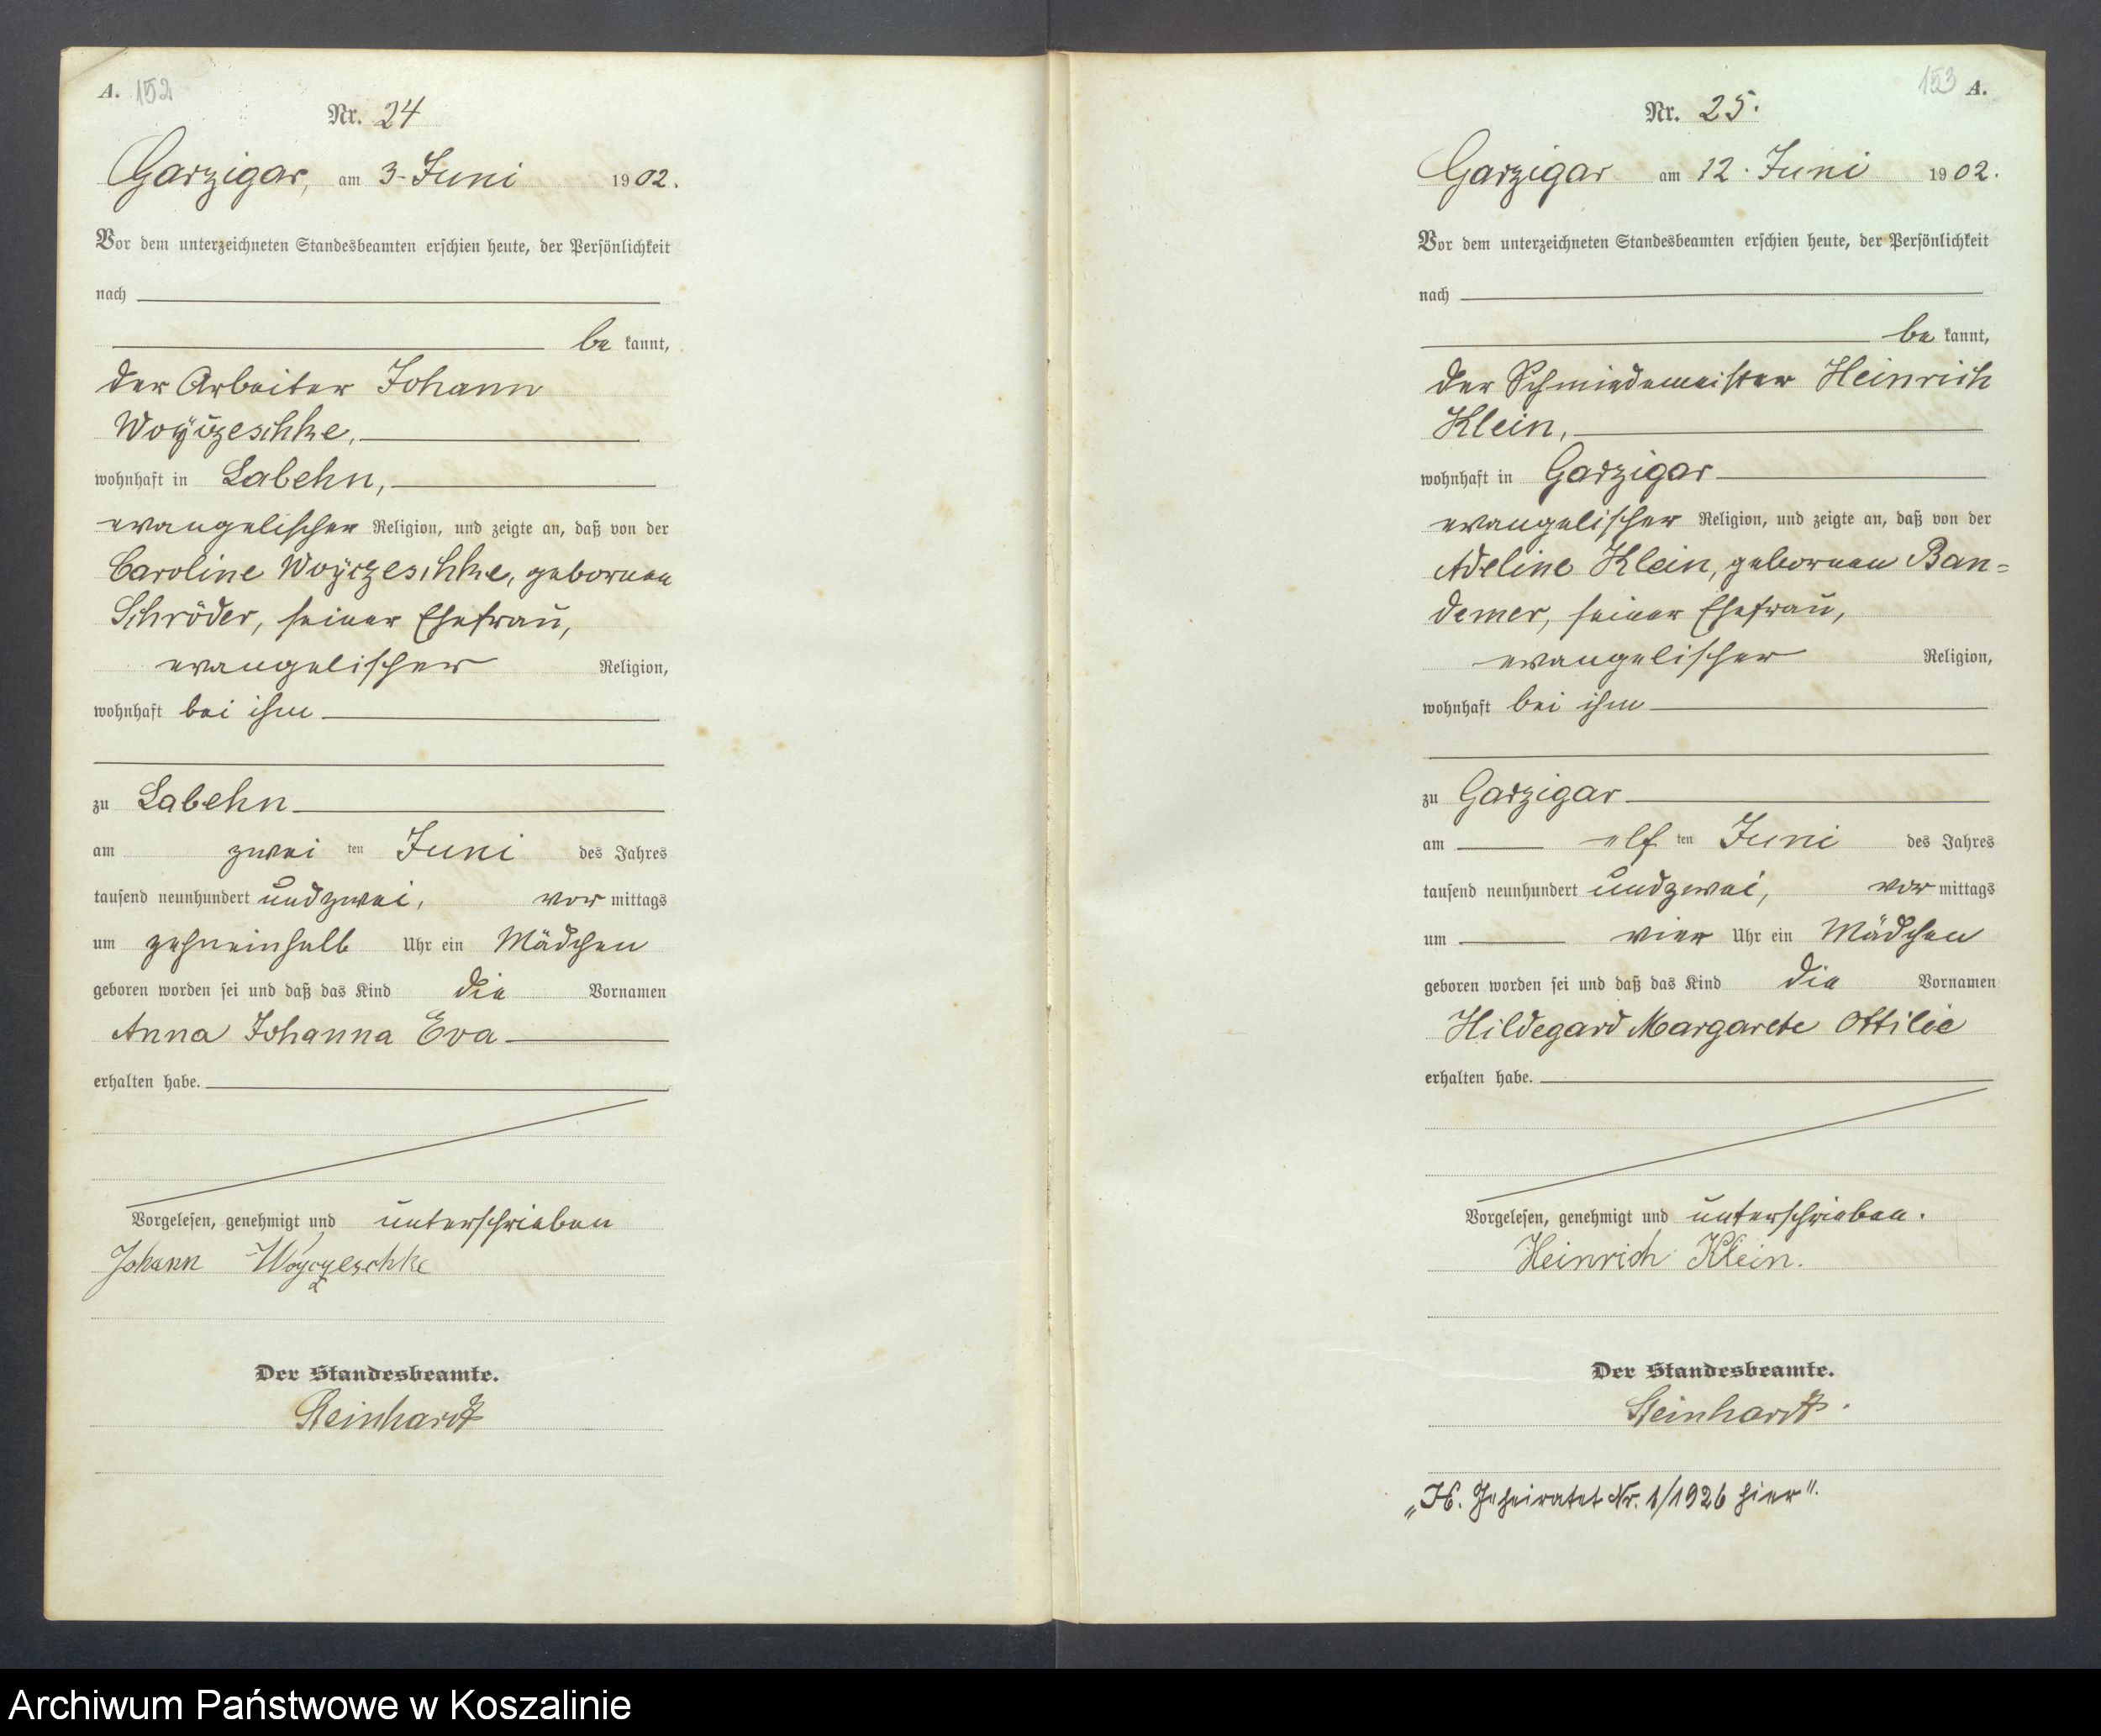 A. 152
Nr. 24
Garzigar, am 3. Juni 1902.
Vor dem unterzeichneten Standesbeamten erschien heute, der Persönlichkeit
nach
be kannt,
der Arbeiter Johann
Woyczeschke,
wohnhaft in Labehn,
evangelischer Religion, und zeigte an, daß von der
Caroline Woyczeschke, gebornen
Schröder, seiner Ehefrau,
evangelischer Religion,
wohnhaft bei ihm
zu Labehn
am zwei ten Juni des Jahres
tausend neunhundert undzwei, vor mittags
um zehneinhalb Uhr ein Mädchen
geboren worden sei und daß das Kind die Vornamen
Anna Johanna Eva
erhalten habe.
Vorgelesen, genehmigt und unterschrieben
Johann Woyczeschke
Der Standesbeamte.
Steinhardt
153 A.
Nr. 25.
Garzigar am 12. Juni 1902.
Vor dem unterzeichneten Standesbeamten erschien heute, der Persönlichkeit
nach
be kannt,
der Schmiedemeister Heinrich
Klein,
wohnhaft in Garzigar
evangelischer Religion, und zeigte an, daß von der
Adeline Klein, gebornen Ban=
demer, seiner Ehefrau,
evangelischer Religion,
wohnhaft bei ihm
zu Garzigar
am elf ten Juni des Jahres
tausend neunhundert undzwei, vor mittags
um vier Uhr ein Mädchen
geboren worden sei und daß das Kind die Vornamen
Hildegard Margarete Ottilie
erhalten habe.
Vorgelesen, genehmigt und unterschrieben.
Heinrich Klein.
Der Standesbeamte.
Steinhardt.
„H. Geheiratet Nr. 1/1926 hier".
Archiwum Państwowe w Koszalinie